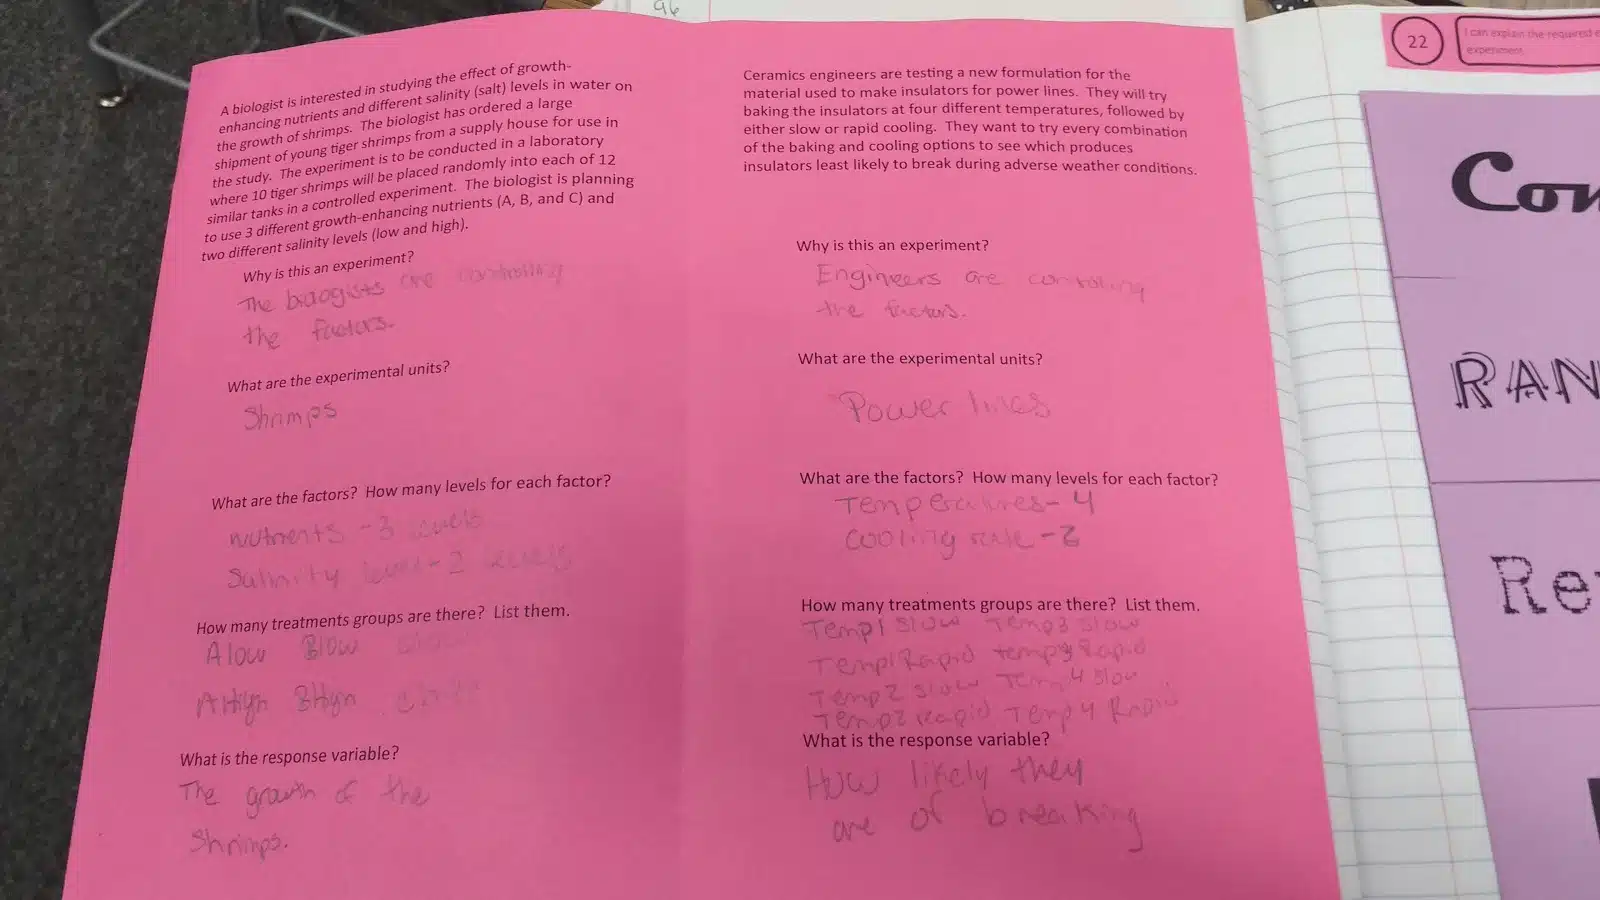 96
A biologist is interested in studying the effect of growth-
enhancing nutrients and different salinity (salt) levels in water on
the growth of shrimps. The biologist has ordered a large
shipment of young tiger shrimps from a supply house for use in
the study. The experiment is to be conducted in a laboratory
where 10 tiger shrimps will be placed randomly into each of 12
similar tanks in a controlled experiment. The biologist is planning
to use 3 different growth-enhancing nutrients (A, B, and C) and
two different salinity levels (low and high).
Why is this an experiment?
The biologists are controlling
the factors.
What are the experimental units?
Shrimps
What are the factors? How many levels for each factor?
Nutrients - 3 levels
Salinity level - 2 levels
How many treatments groups are there? List them.
A low B low
A High B High
What is the response variable?
The growth of the
Shrimps.
Ceramics engineers are testing a new formulation for the
material used to make insulators for power lines. They will try
baking the insulators at four different temperatures, followed by
either slow or rapid cooling. They want to try every combination
of the baking and cooling options to see which produces
insulators least likely to break during adverse weather conditions.
Why is this an experiment?
Engineers are controling
the factors.
What are the experimental units?
Power lines
What are the factors? How many levels for each factor?
Temperatures- 4
cooling rate - 2
How many treatments groups are there? List them.
Temp1 slow Temp3 slow
Temp1 Rapid temp3 Rapid
Temp2 slow Temp 4 slow
Temp2 rapid Temp 4 Rapid
What is the response variable?
How likely they
are of breaking
22
I can explain the required
experiment
Con
RAN
Re